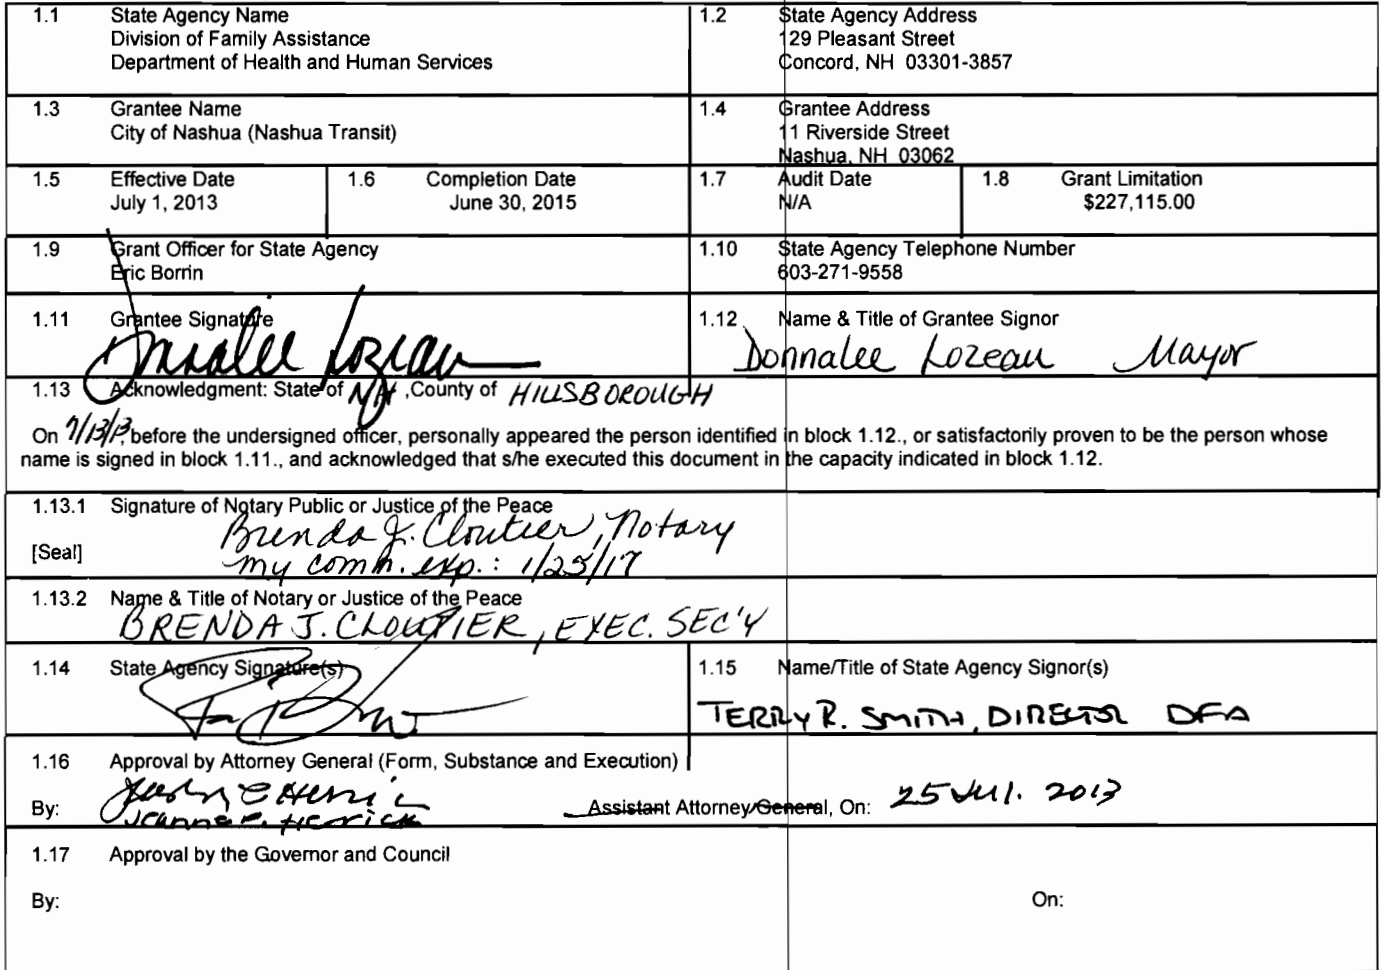 1.1 State Agency Name
Division of Family Assistance
Department of Health and Human Services
1.2 State Agency Address
129 Pleasant Street
Concord, NH 03301-3857
1.3 Grantee Name
City of Nashua (Nashua Transit)
1.4 Grantee Address
11 Riverside Street
Nashua, NH 03062
1.5 Effective Date
July 1, 2013
1.6 Completion Date
June 30, 2015
1.7 Audit Date
N/A
1.8 Grant Limitation
$227,115.00
1.9 Grant Officer for State Agency
Eric Borrin
1.10 State Agency Telephone Number
603-271-9558
1.11 Grantee Signature
Donnalee Lozeau
1.12 Name & Title of Grantee Signor
Donnalee Lozeau Mayor
1.13 Acknowledgment: State of NH ,County of HILLSBOROUGH
On 7/13/13, before the undersigned officer, personally appeared the person identified in block 1.12., or satisfactorily proven to be the person whose
name is signed in block 1.11., and acknowledged that s/he executed this document in the capacity indicated in block 1.12.
1.13.1 Signature of Notary Public or Justice of the Peace
Brenda J. Cloutier, Notary
[Seal]
my comm. exp.: 1/25/17
1.13.2 Name & Title of Notary or Justice of the Peace
BRENDA J. CLOUTIER, EXEC. SEC'Y
1.14 State Agency Signature(s)
1.15 Name/Title of State Agency Signor(s)
TERRY R. SMITH, DIRECTOR DFA
1.16 Approval by Attorney General (Form, Substance and Execution)
By: Assistant Attorney General, On: 25 Jul. 2013
Jeanne P. Herrick
1.17 Approval by the Governor and Council
By: On: